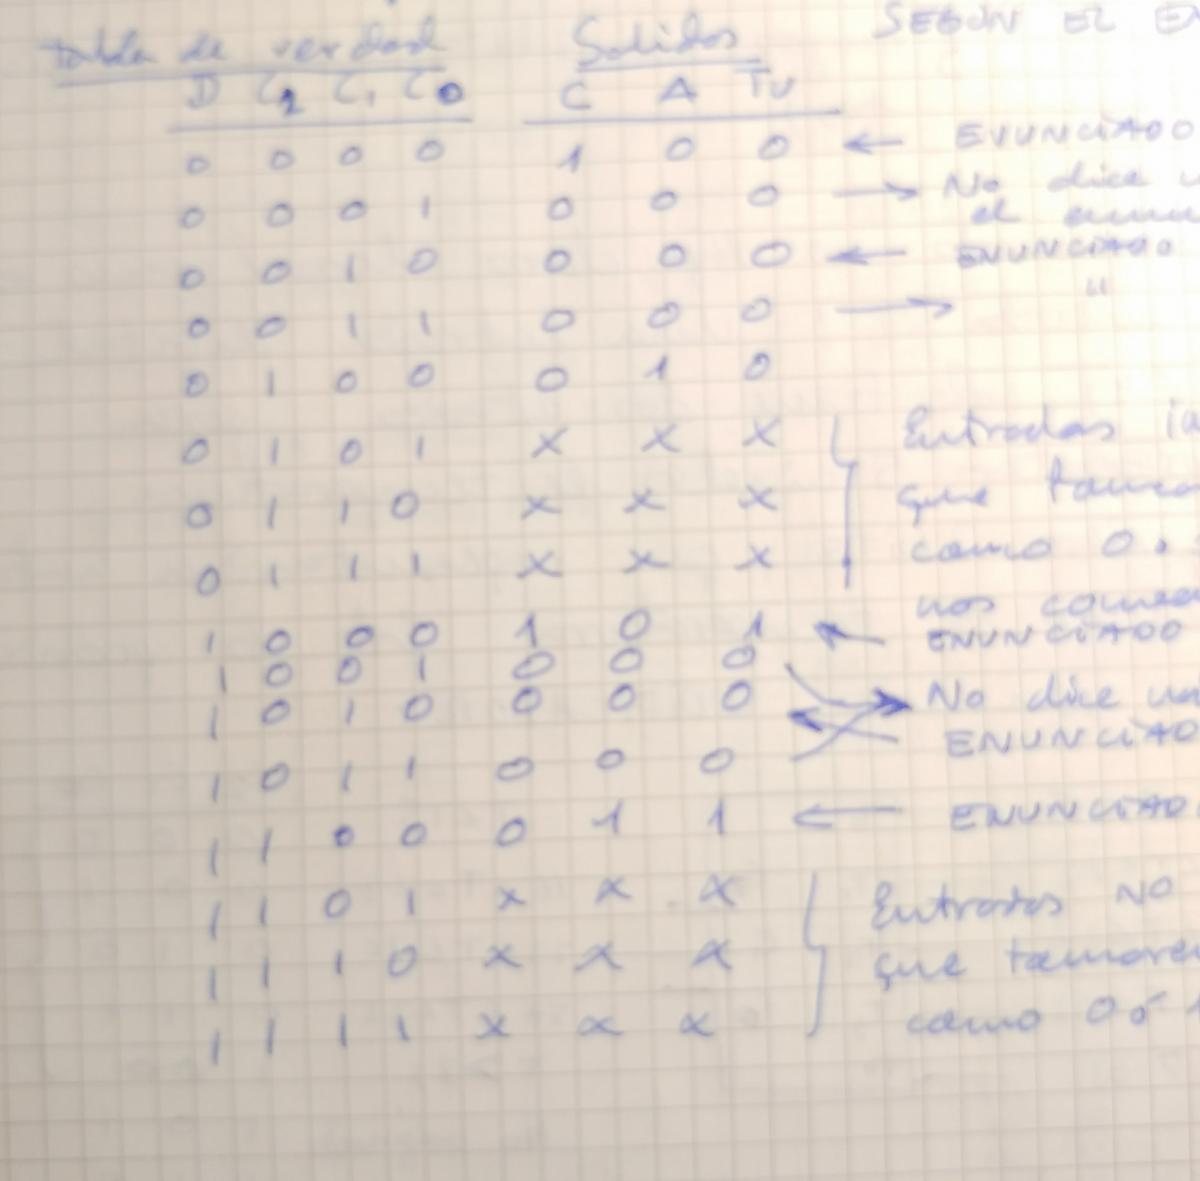 Tabla de verdad Salidas SEGÚN EL
D C2 C1 C0 C A Tu
0 0 0 0 1 0 0 ← ENUNCIADO
0 0 0 1 0 0 0 → No dice
el
0 0 1 0 0 0 0 ← ENUNCIADO
0 0 1 1 0 0 0 → "
0 1 0 0 0 1 0
0 1 0 1 x x x Entradas
0 1 1 0 x x x que
0 1 1 1 x x x como 0
nos
1 0 0 0 1 0 1 ← ENUNCIADO
1 0 0 1 0 0 0
1 0 1 0 0 0 0 No dice
ENUNCIADO
1 0 1 1 0 0 0
1 1 0 0 0 1 1 ← ENUNCIADO
1 1 0 1 x x x Entradas NO
1 1 1 0 x x x que
1 1 1 1 x x x como 0 ó 1